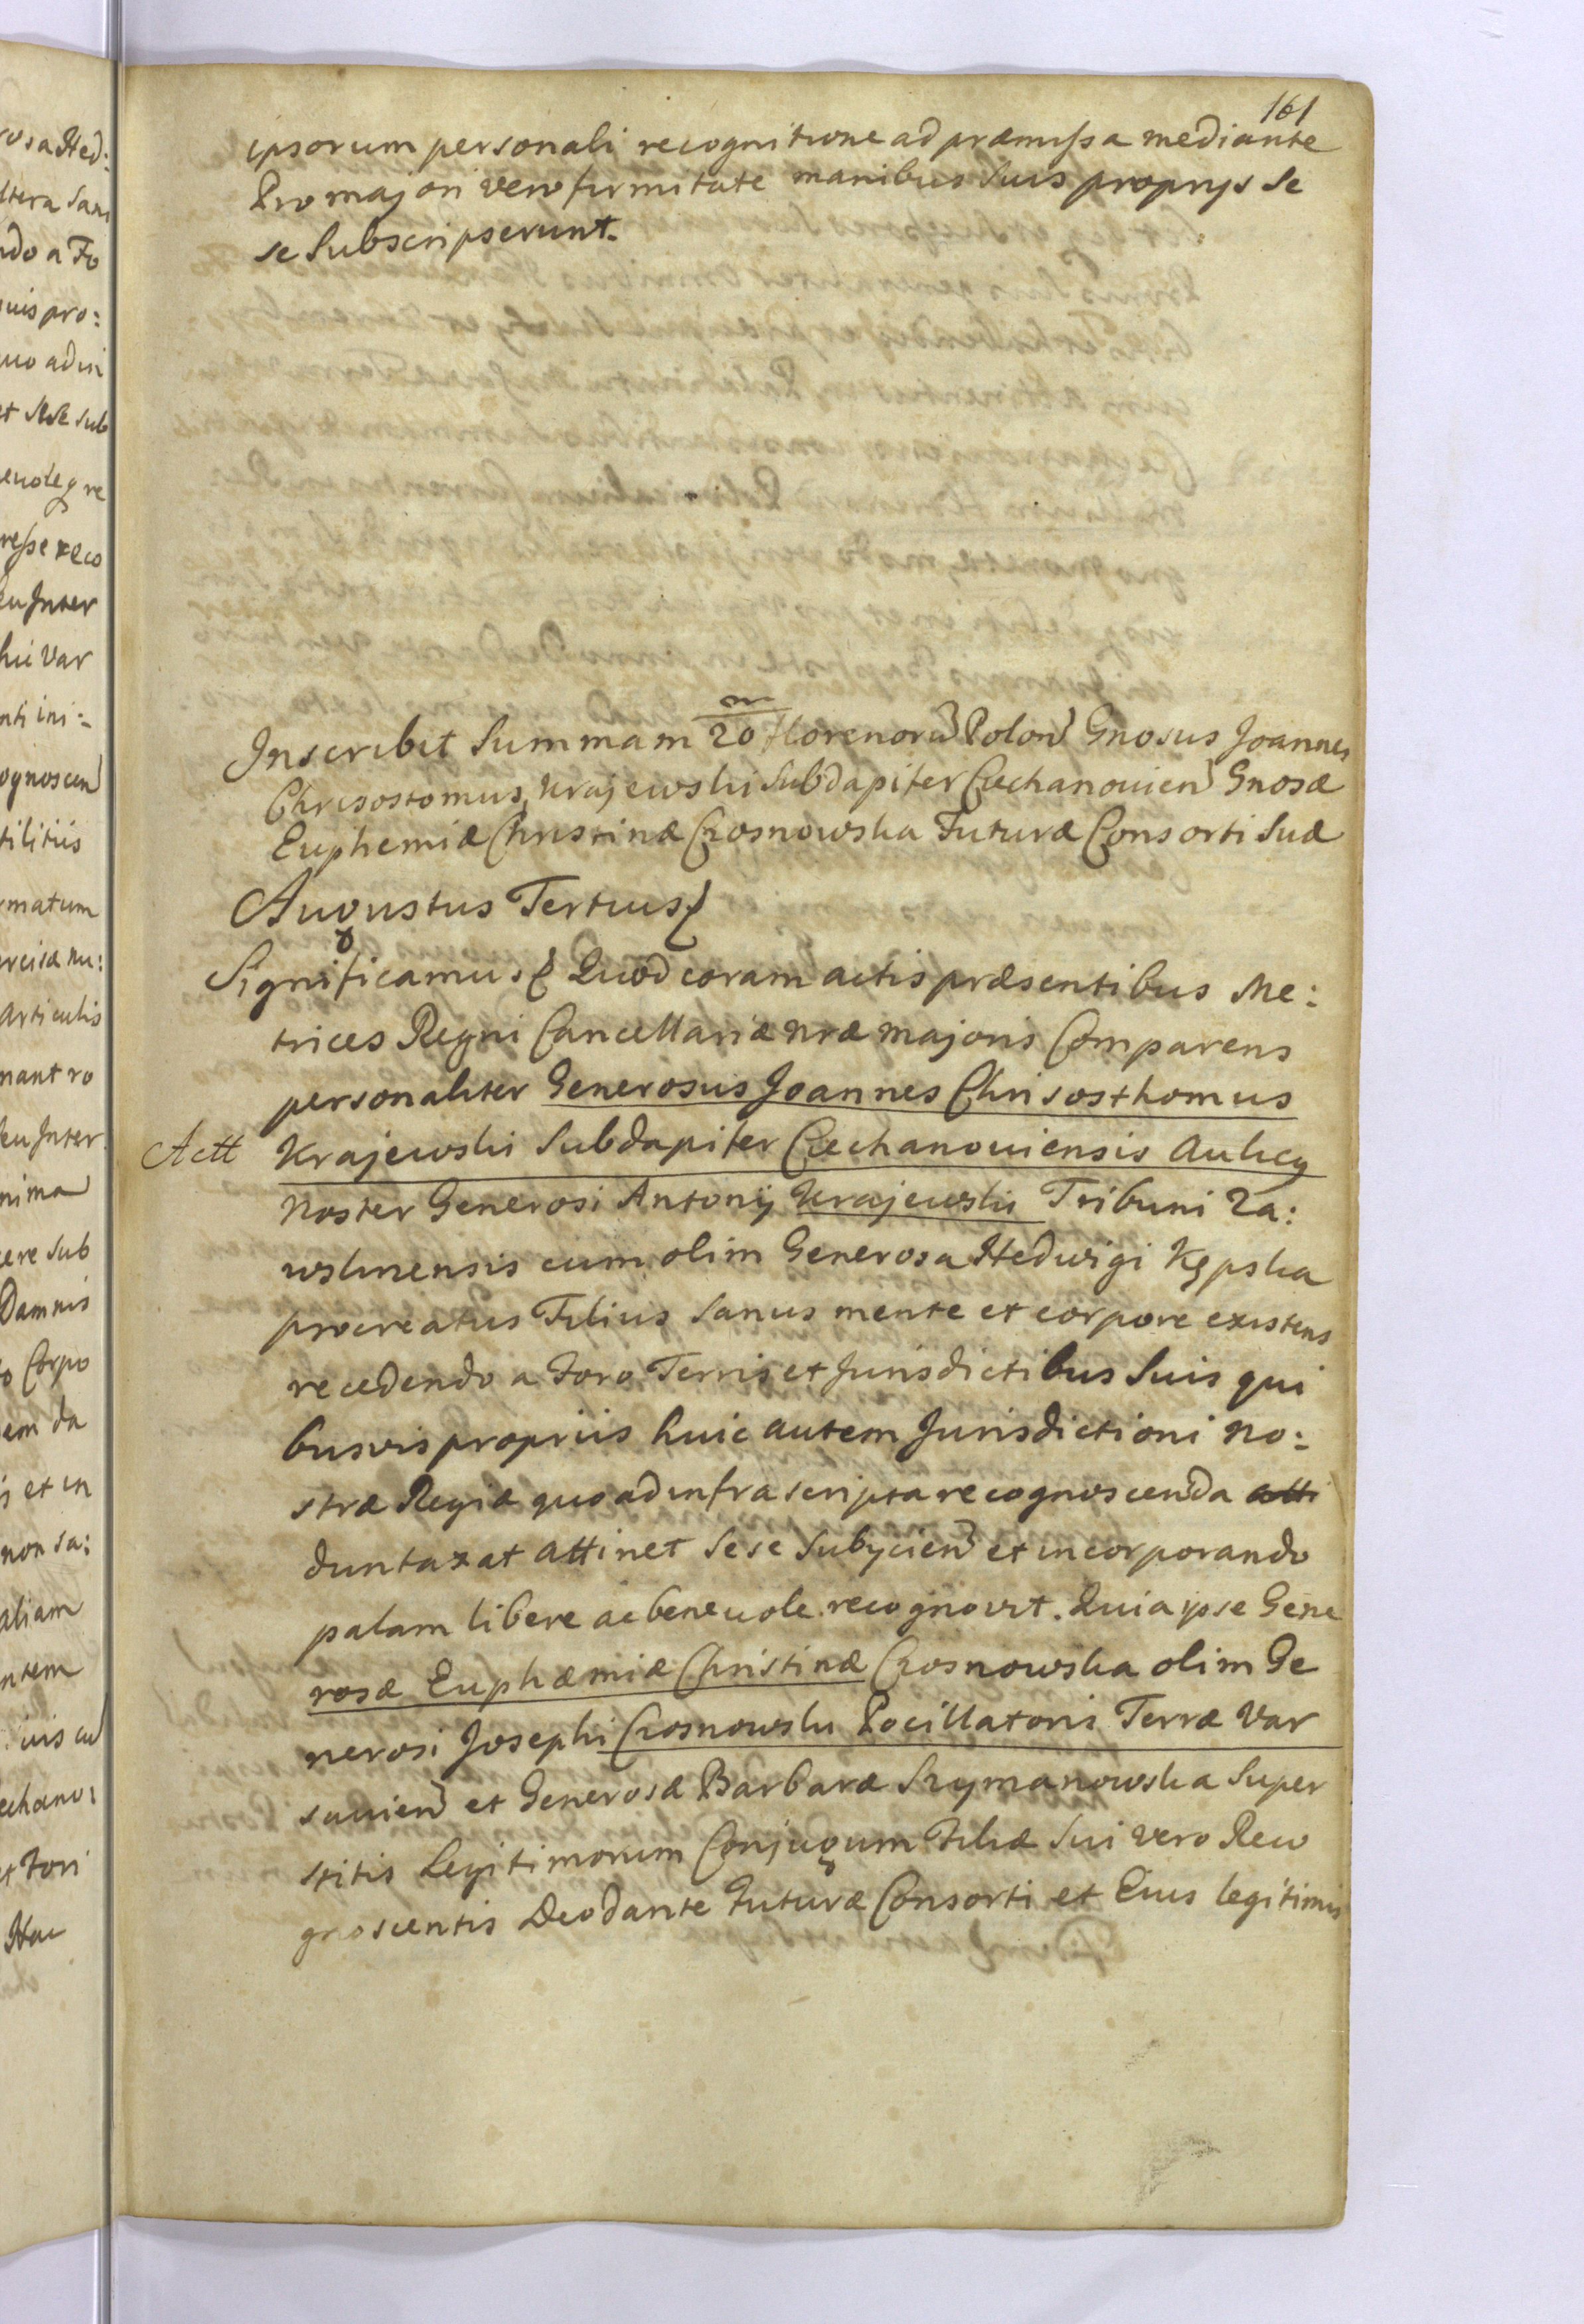 161
ipsorum personali recognitione ad præmissa mediante
Pro majori vero firmitate manibus suis proprys se
se subscripserunt.
Inscribit Summam 20 m Florenorũ Polon Gnosus Joannes
Chrisostomus Krajewski Subdapifer Ciechanovien Gnosæ
Euphemiæ Christinæ Czosnowska Futuræ Consorti Suæ
Augustus Tertius
Significamus Quod coram actis præsentibus Me:
trices Regni Cancellariæ nræ majoris Comparens
personaliter Generosus Joannes Chrisosthomus
Actt Krajewski Subdapifer Ciechanoviensis Aulicq
Noster Generosi Antonij Krajewski Tribuni Za:
wskrnensis cum olim Generosa Hedvigi Kępska
procreatus Filius sanus mente et corpore existens
recedendo a Foro Terris et Jurisdictibus Suis qui
busvis propriis huic autem Jurisdictioni No:
stræ Regiæ quo ad infra scripta recognoscenda atti
duntaxat attinet sese subjicien et incorporando
palam libere ac benevole recognovit. Quia ipse Gene
rosæ Euphæmiæ Christinæ Czosnowska olim Ge
nerosi Josephi Czosnowski Pocillatoris Terræ Var
savien et Generosæ Barbaræ Szymanowska super
stitis Legitimorum Conjugum Filiæ Sui vero Reco
gnoscentis Deo dante Futuræ Consorti et Eius legitimis